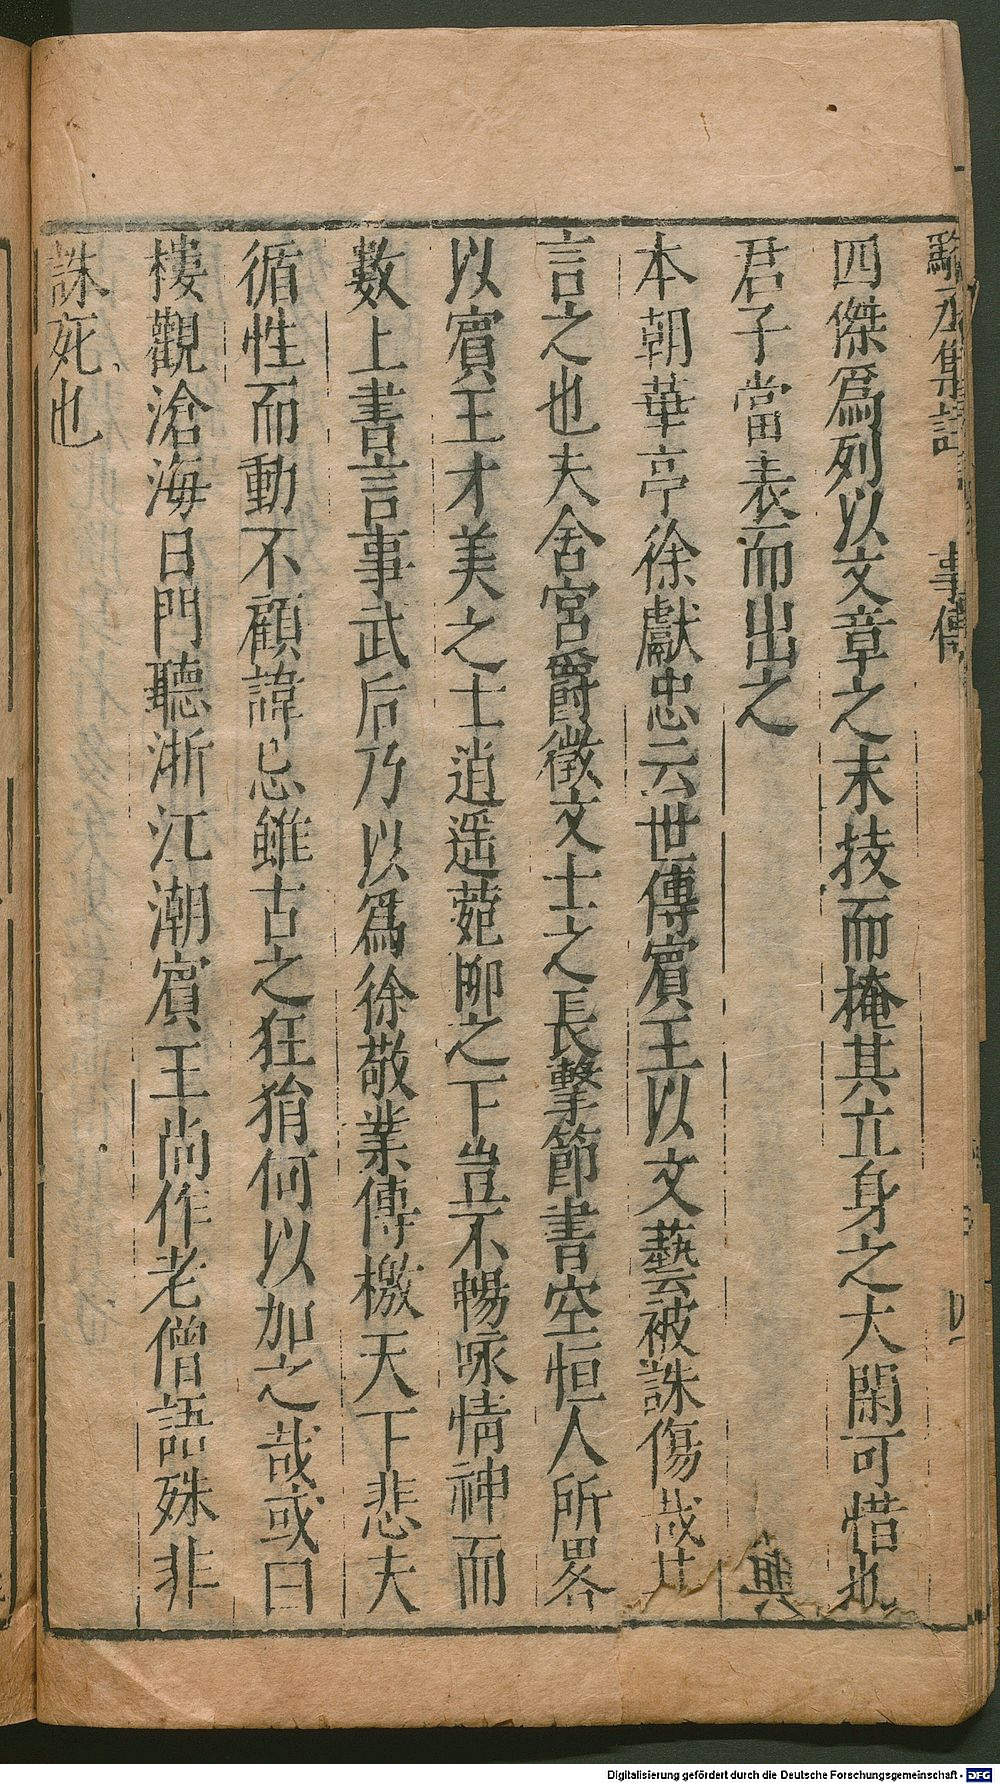 駱丞集註 本傳
四傑爲列以文章之末技而掩其立身之大閑可惜也
君子當表而出之 輿
本朝華亭徐獻忠云世傳賓王以文藝被誅傷哉其
言之也夫舍宮爵徵文士之長擊節書空恒人所畧
以賓王才美之士逍遥菀柳之下豈不暢咏情神而
數上書言事武后乃以爲徐敬業傳檄天下悲夫
循性而動不顧諱忌雖古之狂狷何以加之哉或曰
樓觀滄海日門聽浙江潮賓王尚作老僧語殊非
誅死也
Digitalisierung gefördert durch die Deutsche Forschungsgemeinschaft - DFG